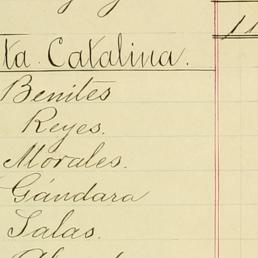 ta. Catalina.
Benites
Reyes.
Morales.
Gándara
Salas.